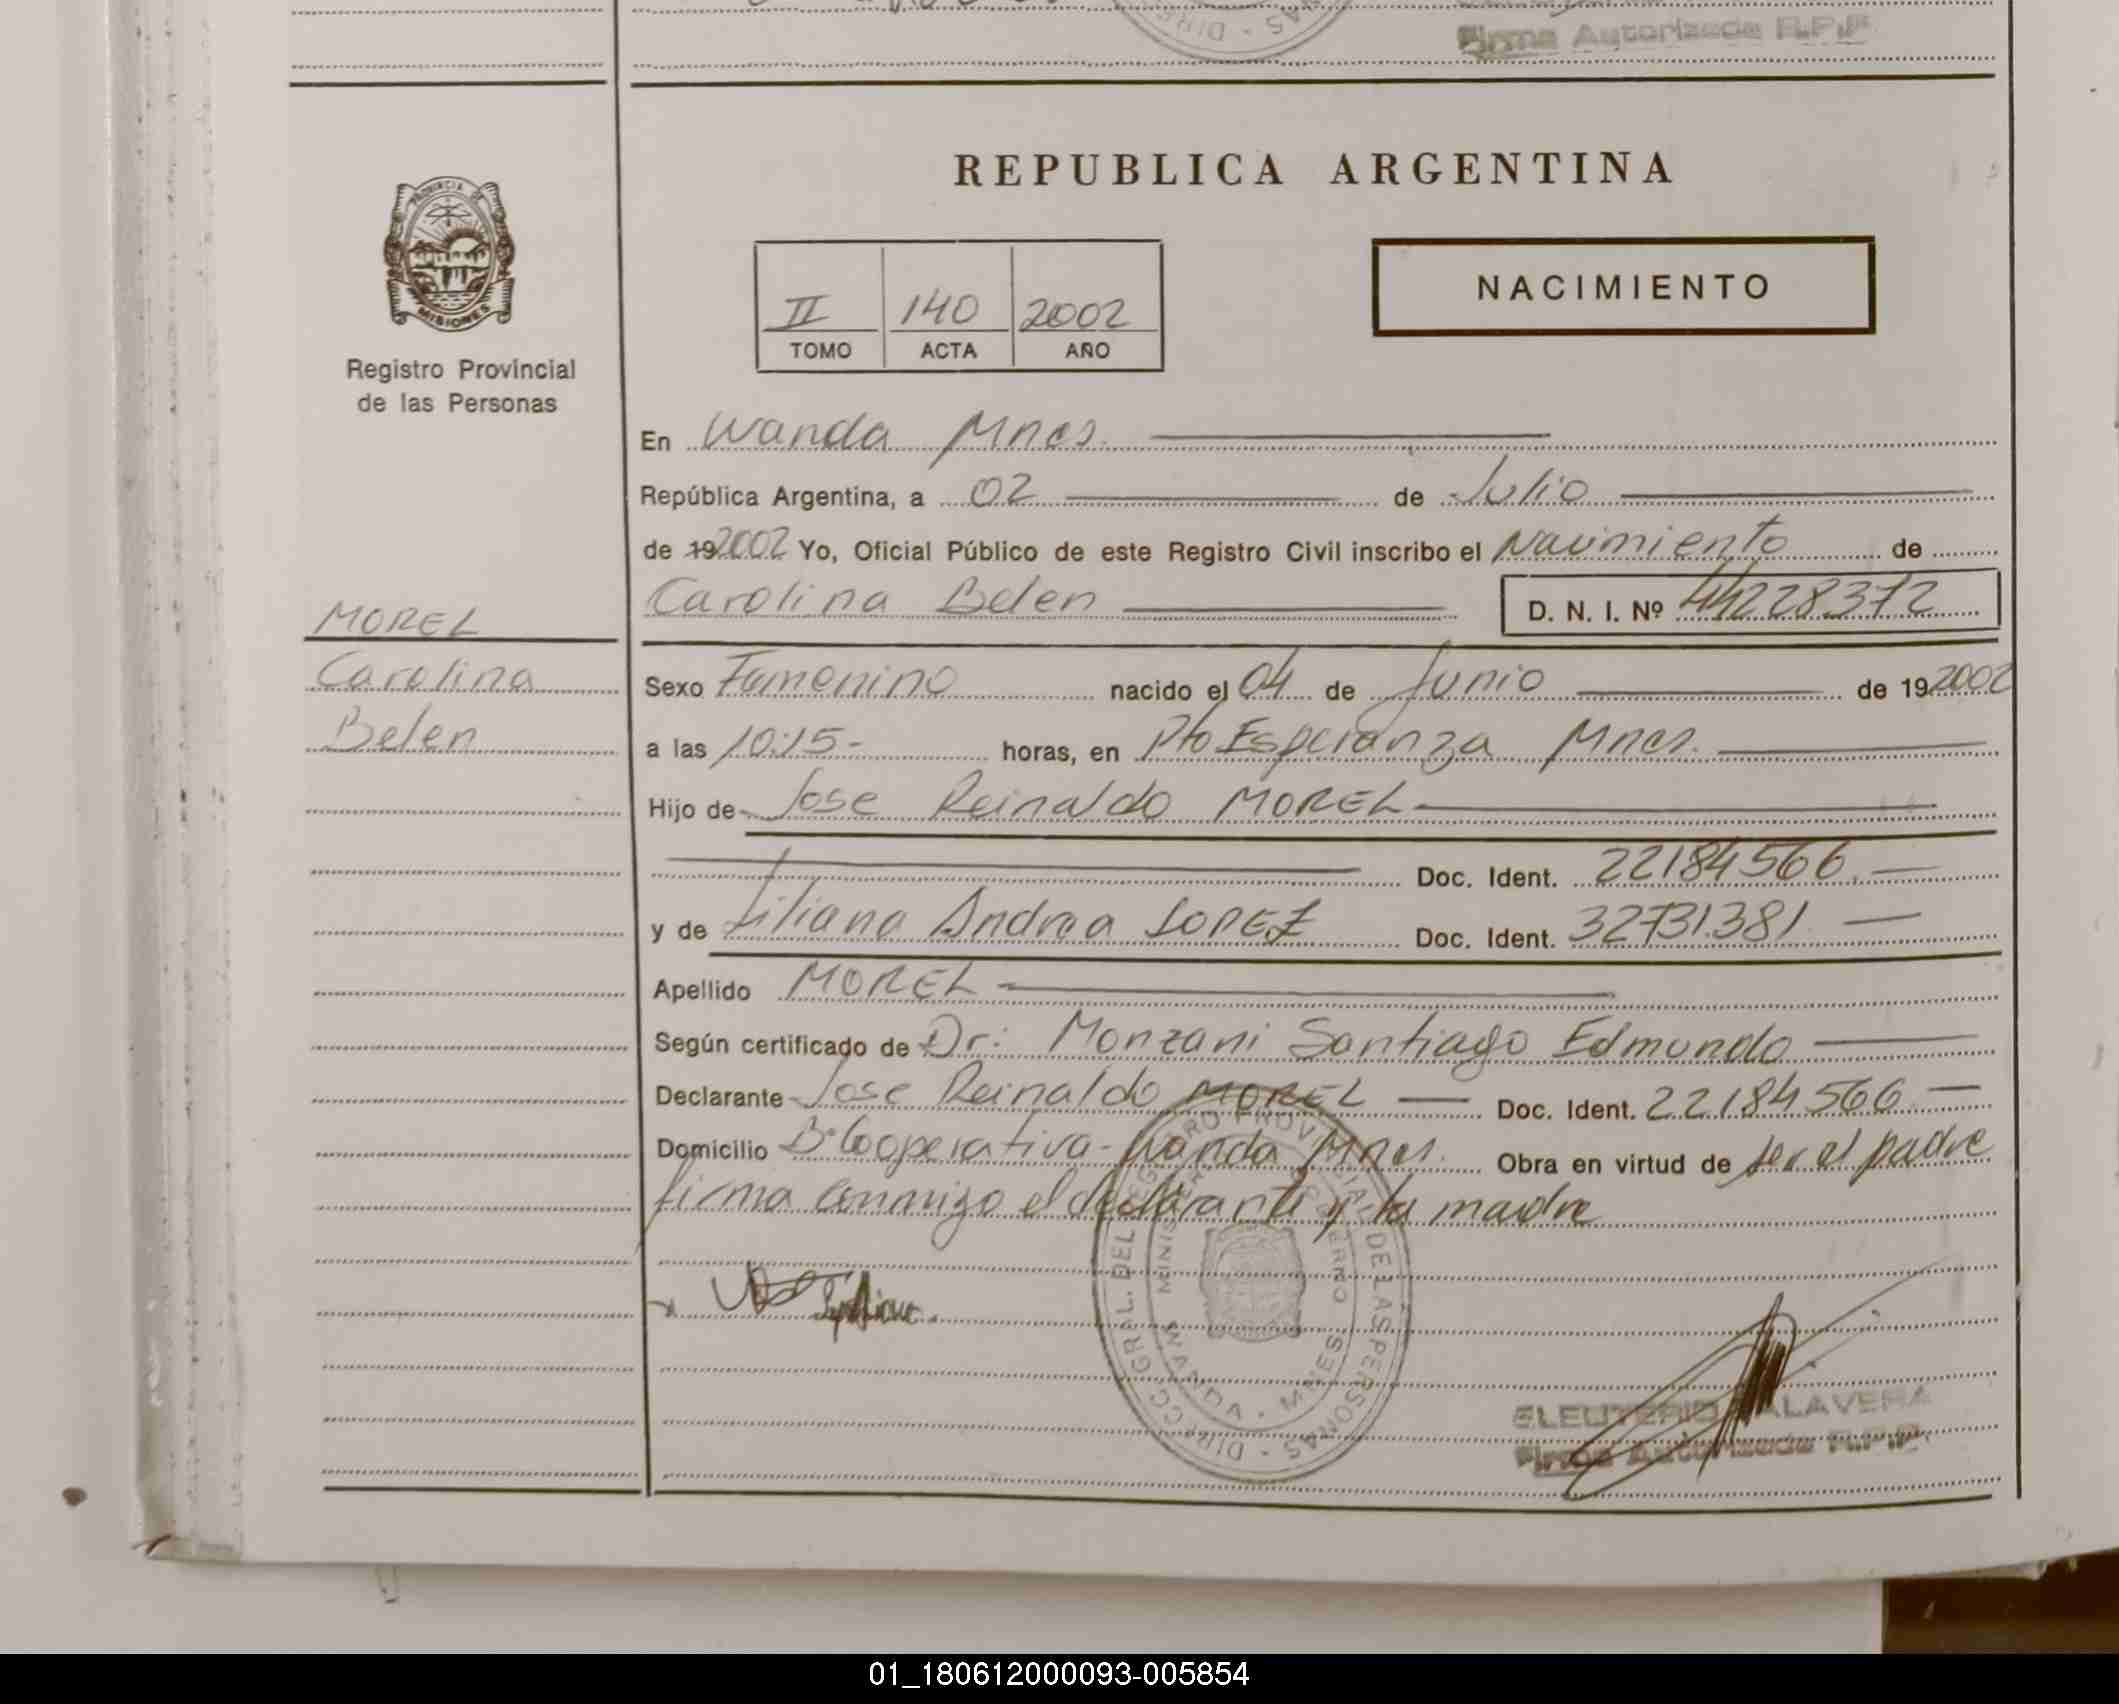 Firma Autorizada R.P.P
REPUBLICA ARGENTINA
PROVINCIA DE
MISIONES
Registro Provincial
de las Personas
II 140 2002
TOMO ACTA AÑO
NACIMIENTO
En Wanda Mnes.
República Argentina, a 02 de Julio
de 192002 Yo, Oficial Público de este Registro Civil inscribo el Nacimiento de
Carolina Belen D. N. I. Nº 44228372
MOREL
Carolina
Belen
Sexo Femenino nacido el 04 de Junio de 192002
a las 10:15- horas, en Pto Esperanza Mnes.
Hijo de Jose Reinaldo MOREL
Doc. Ident. 22184566.
y de Liliana Andrea LOPEZ Doc. Ident. 32731381.
Apellido MOREL
Según certificado de Dr: Monzani Santiago Edmundo
Declarante Jose Reinaldo MOREL Doc. Ident. 22184566
Domicilio Bº Cooperativa - Wanda Mnes. Obra en virtud de ser el padre
firma conmigo el declarante y la madre
DIRECC. GRAL. DEL REGISTRO PROVINCIAL DE LAS PERSONAS
WANDA - MNES
ELEUTERIO TALAVERA
Firma Autorizada R.P.P.
01_180612000093-005854